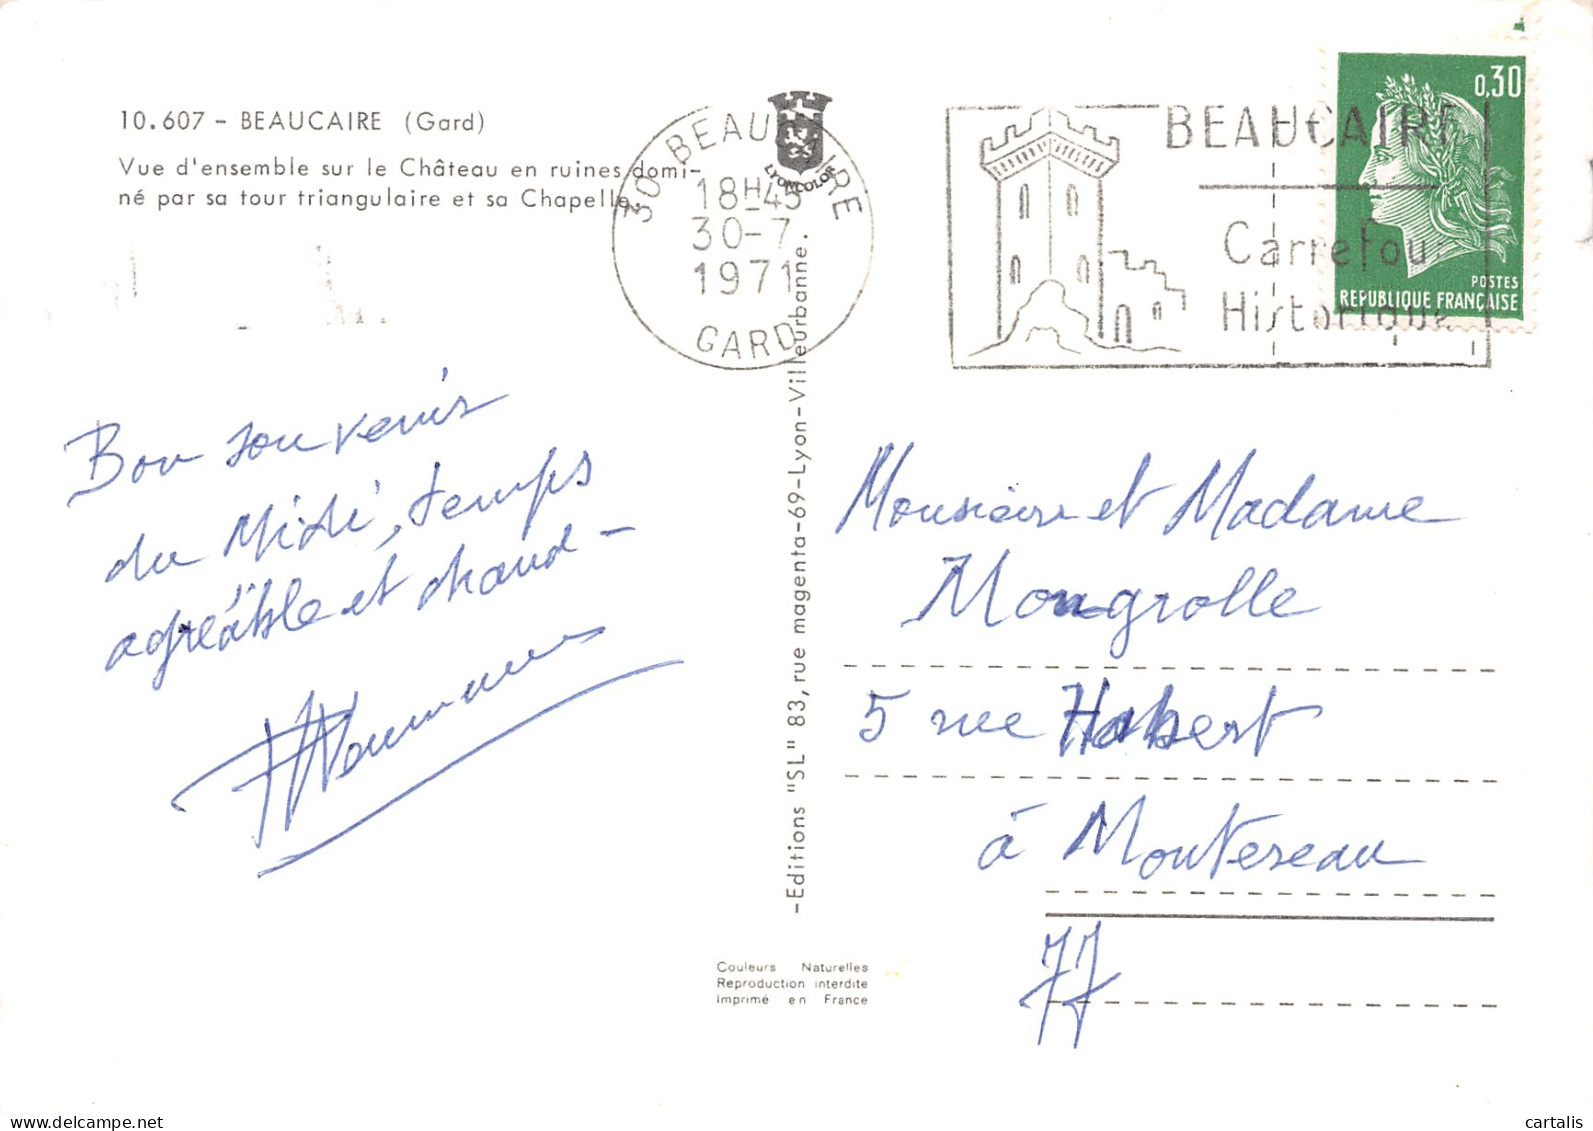 10.607 - BEAUCAIRE (Gard)
Vue d'ensemble sur le Château en ruines domi-
né par sa tour triangulaire et sa Chapelle.
LYONCOLOR
30 BEAUCAIRE
18H45
30-7
1971
GARD
BEAUCAIRE
Carrefour
Historique
0,30
POSTES
REPUBLIQUE FRANÇAISE
Bon souvenir
du Midi, temps
agréable et chaud -
-Editions "SL" 83, rue magenta-69-Lyon-Villeurbanne.
Monsieur et Madame
Mongrolle
5 rue Habert
à Montereau
77
Couleurs Naturelles
Reproduction interdite
Imprimé en France
cartalis